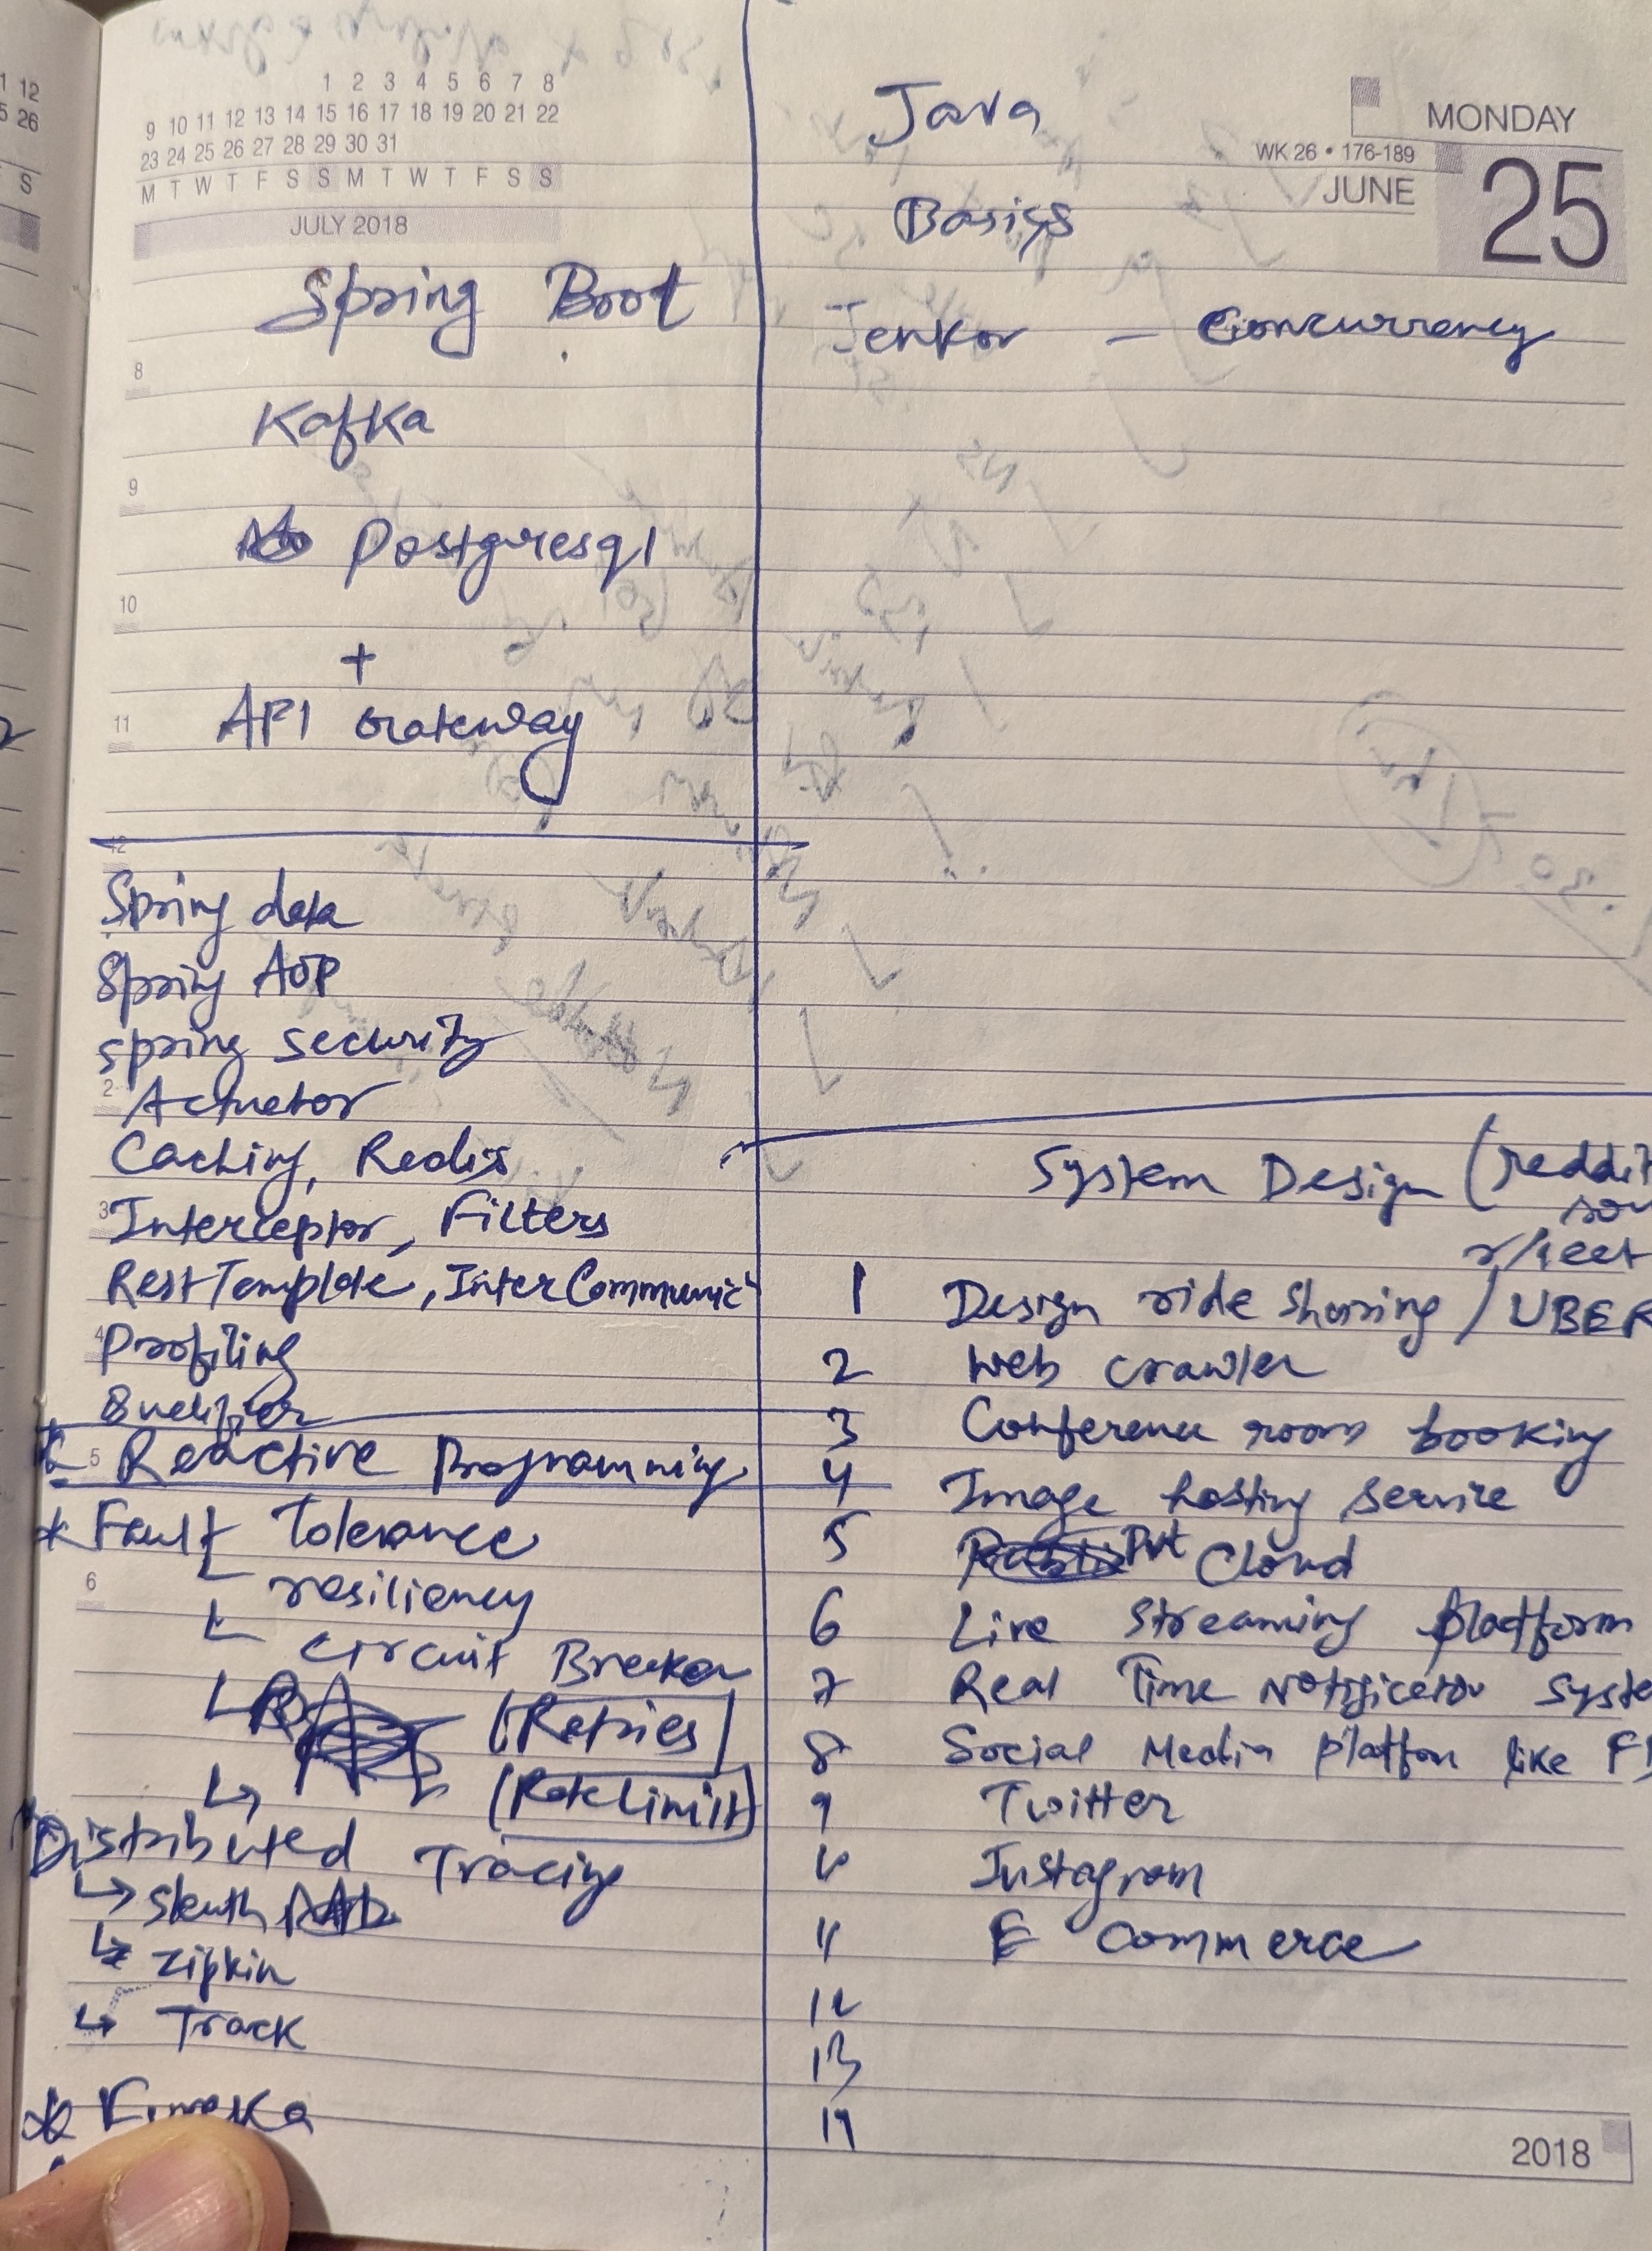 1 12
5 26
S
1 2 3 4 5 6 7 8
9 10 11 12 13 14 15 16 17 18 19 20 21 22
23 24 25 26 27 28 29 30 31
M T W T F S S M T W T F S S
JULY 2018
Spring Boot
8
Kafka
9
Postgresql
10
+
11 API Gateway
12
Spring data
Spring AOP
Spring security
2 Actuator
Caching, Redis
3 Interceptor, Filters
RestTemplate, InterCommunic
4 Profiling
5 Reactive Programming
* Fault Tolerance
6 resiliency
Circuit Breaker
(Retries)
(RateLimit)
Distributed Tracing
Zipkin
Track
*
Java
MONDAY
WK 26 • 176-189
JUNE
25
Basics
Jenkov - Concurrency
System Design (reddit
1 Design ride sharing / UBER
2 Web crawler
3 Conference room booking
4 Image hosting service
5 Pvt Cloud
6 Live streaming platform
7 Real Time Notification Syste
8 Social Media platfom like
9 Twitter
10 Instagram
11 E Commerce
12
13
14
2018